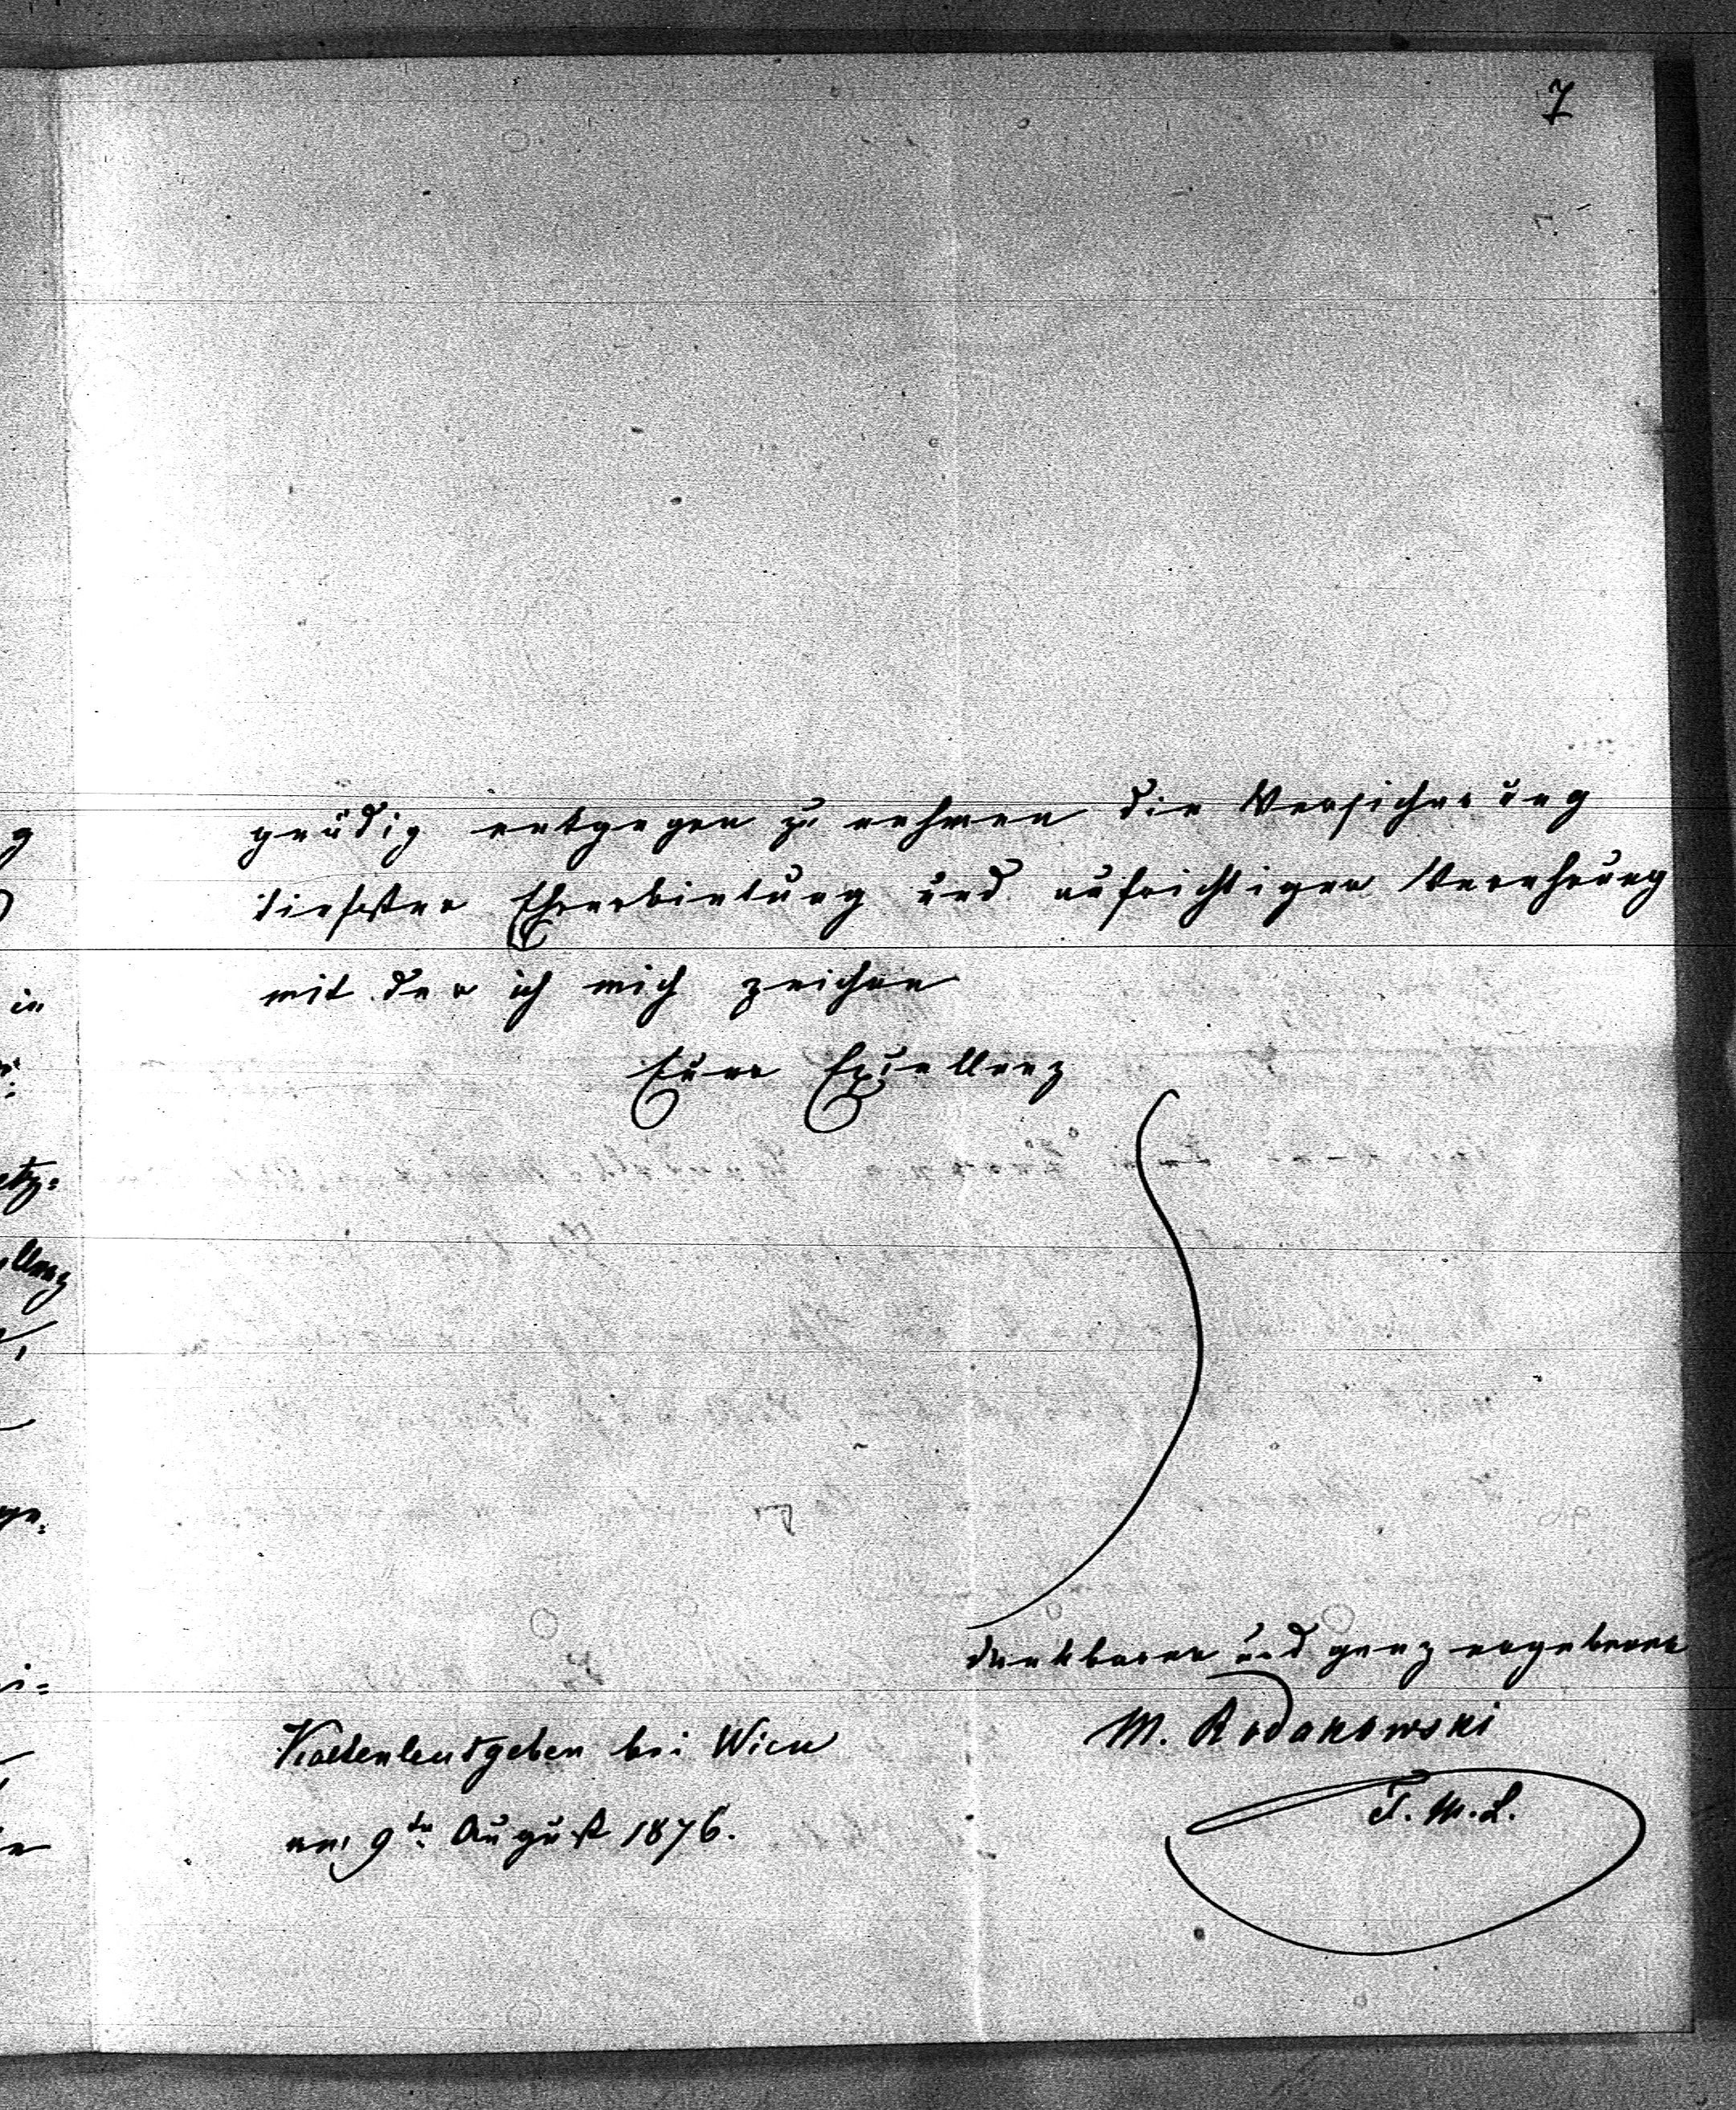 7
gnädig entgegen zu nehmen die Versicherung
tiefster Ehrerbietung und aufrichtiger Verehrung
mit der ich mich zeichne
Euer Exzellenz
dankbarer und ganz ergebener
M. Rodakowski
F. M. L.
Kaltenleutgeben bei Wien
am 9ten August 1876.